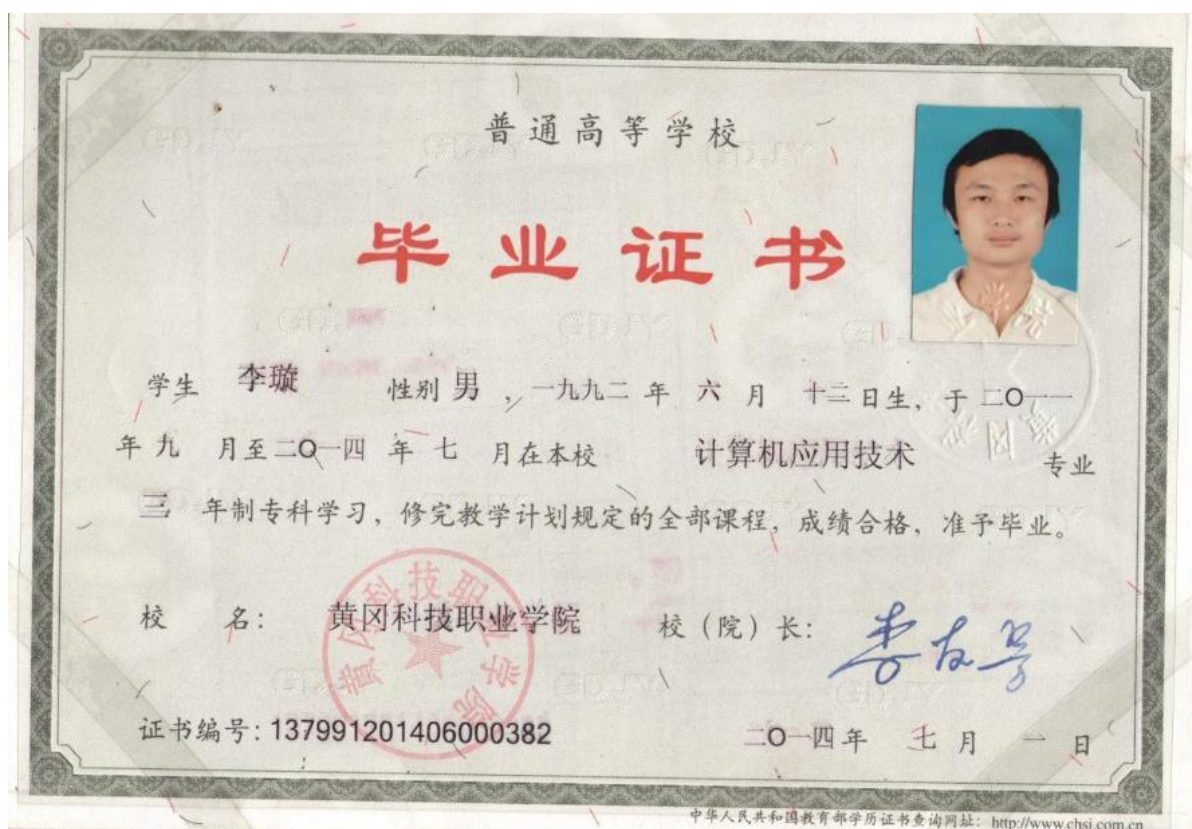 普通高等学校
毕业证书
学生 李璇 性别 男 ，一九九二 年 六 月 十二 日生，于 二O一一
年 九 月至 二O一四 年 七 月在本校 计算机应用技术 专业
三 年制专科学习，修完教学计划规定的全部课程，成绩合格，准予毕业。
校 名： 黄冈科技职业学院 校（院）长：
黄冈科技职业学院
证书编号：137991201406000382 二O一四 年 七 月 一 日
中华人民共和国教育部学历证书查询网址： http://www.chsi.com.cn